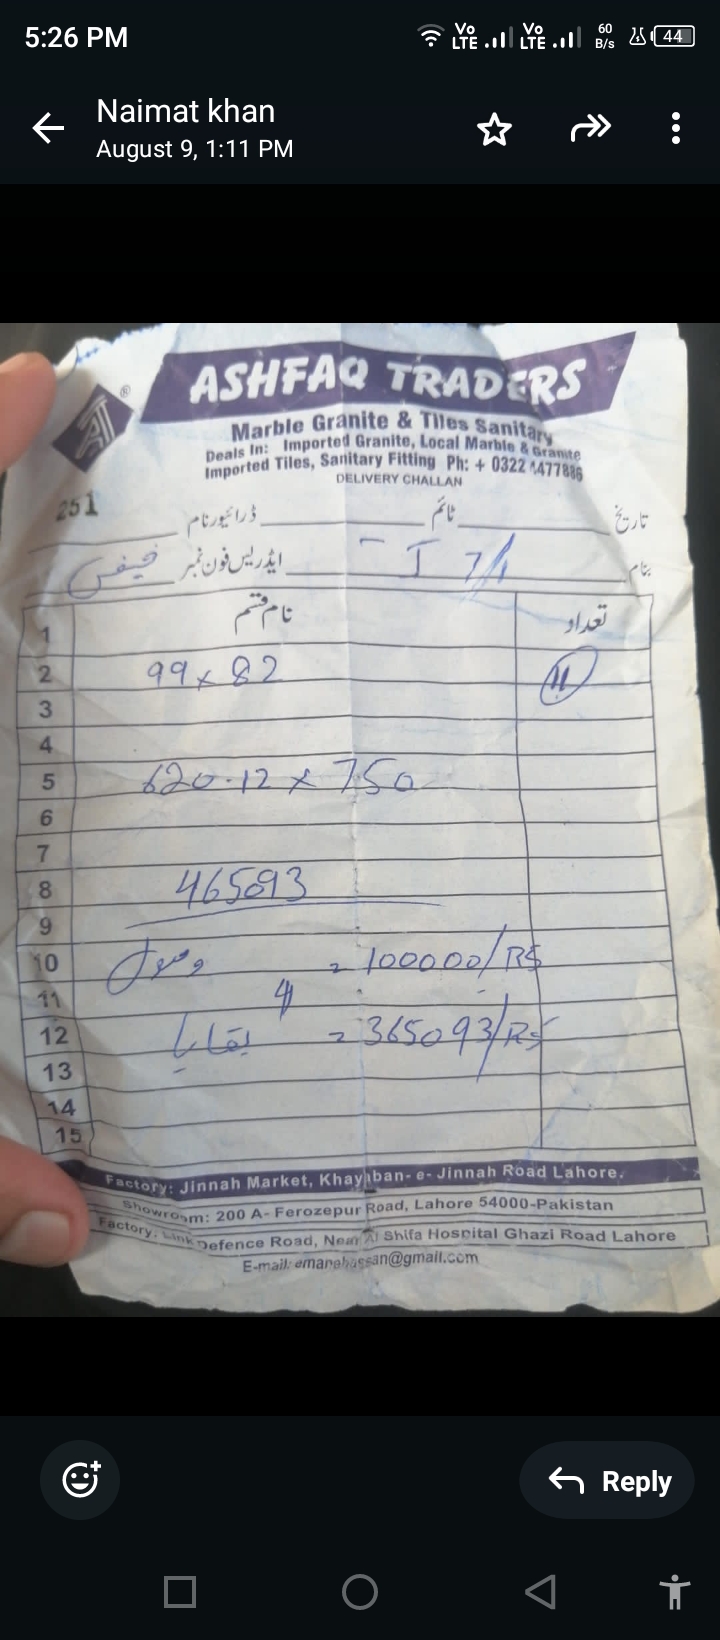 5:26 PM
Vo LTE Vo LTE 60 B/s 44
Naimat khan
August 9, 1:11 PM
ASHFAQ TRADERS
AT ®
Marble Granite & Tiles Sanitary
Deals In: Imported Granite, Local Marble & Granite
Imported Tiles, Sanitary Fitting Ph: + 0322 4477886
DELIVERY CHALLAN
251
تاریخ ٹائم ڈرائیور نام
بنام I 7/1 ایڈریس فون نمبر
نام قسم تعداد
1
2 99 x 82 11
3
4
5 620.12 x 750
6
7
8 465093
9
10 وصول = 100000/RS
11
12 بقایا = 365093/RS
13
14
15
Factory: Jinnah Market, Khayaban- e- Jinnah Road Lahore.
Showroom: 200 A- Ferozepur Road, Lahore 54000-Pakistan
Factory: Link Defence Road, Near Al Shifa Hospital Ghazi Road Lahore
E-mail: emanehassan@gmail.com
Reply